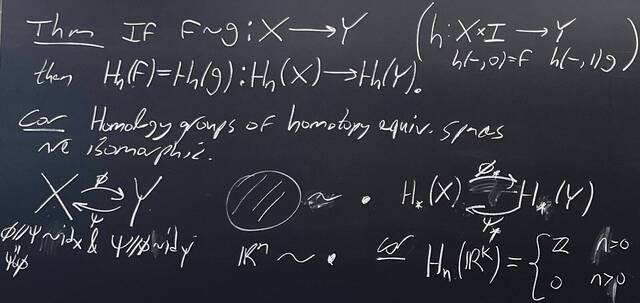 Thm If F ~ g : X → Y (h : X × I → Y
h(-,0)=F h(-,1)g)
then Hn(F) = Hn(g) : Hn(X) → Hn(Y).
Cor Homology groups of homotopy equiv. spaces
are isomorphic.
X ⇄ Y ~ • H*(X) ⇄ H*(Y)
φ ψ φ* ψ*
φ//ψ ~ idx & ψ//φ ~ idy
ψφ
ℝⁿ ~ • Cor Hn(ℝᵏ) = { ℤ n=0
0 n>0